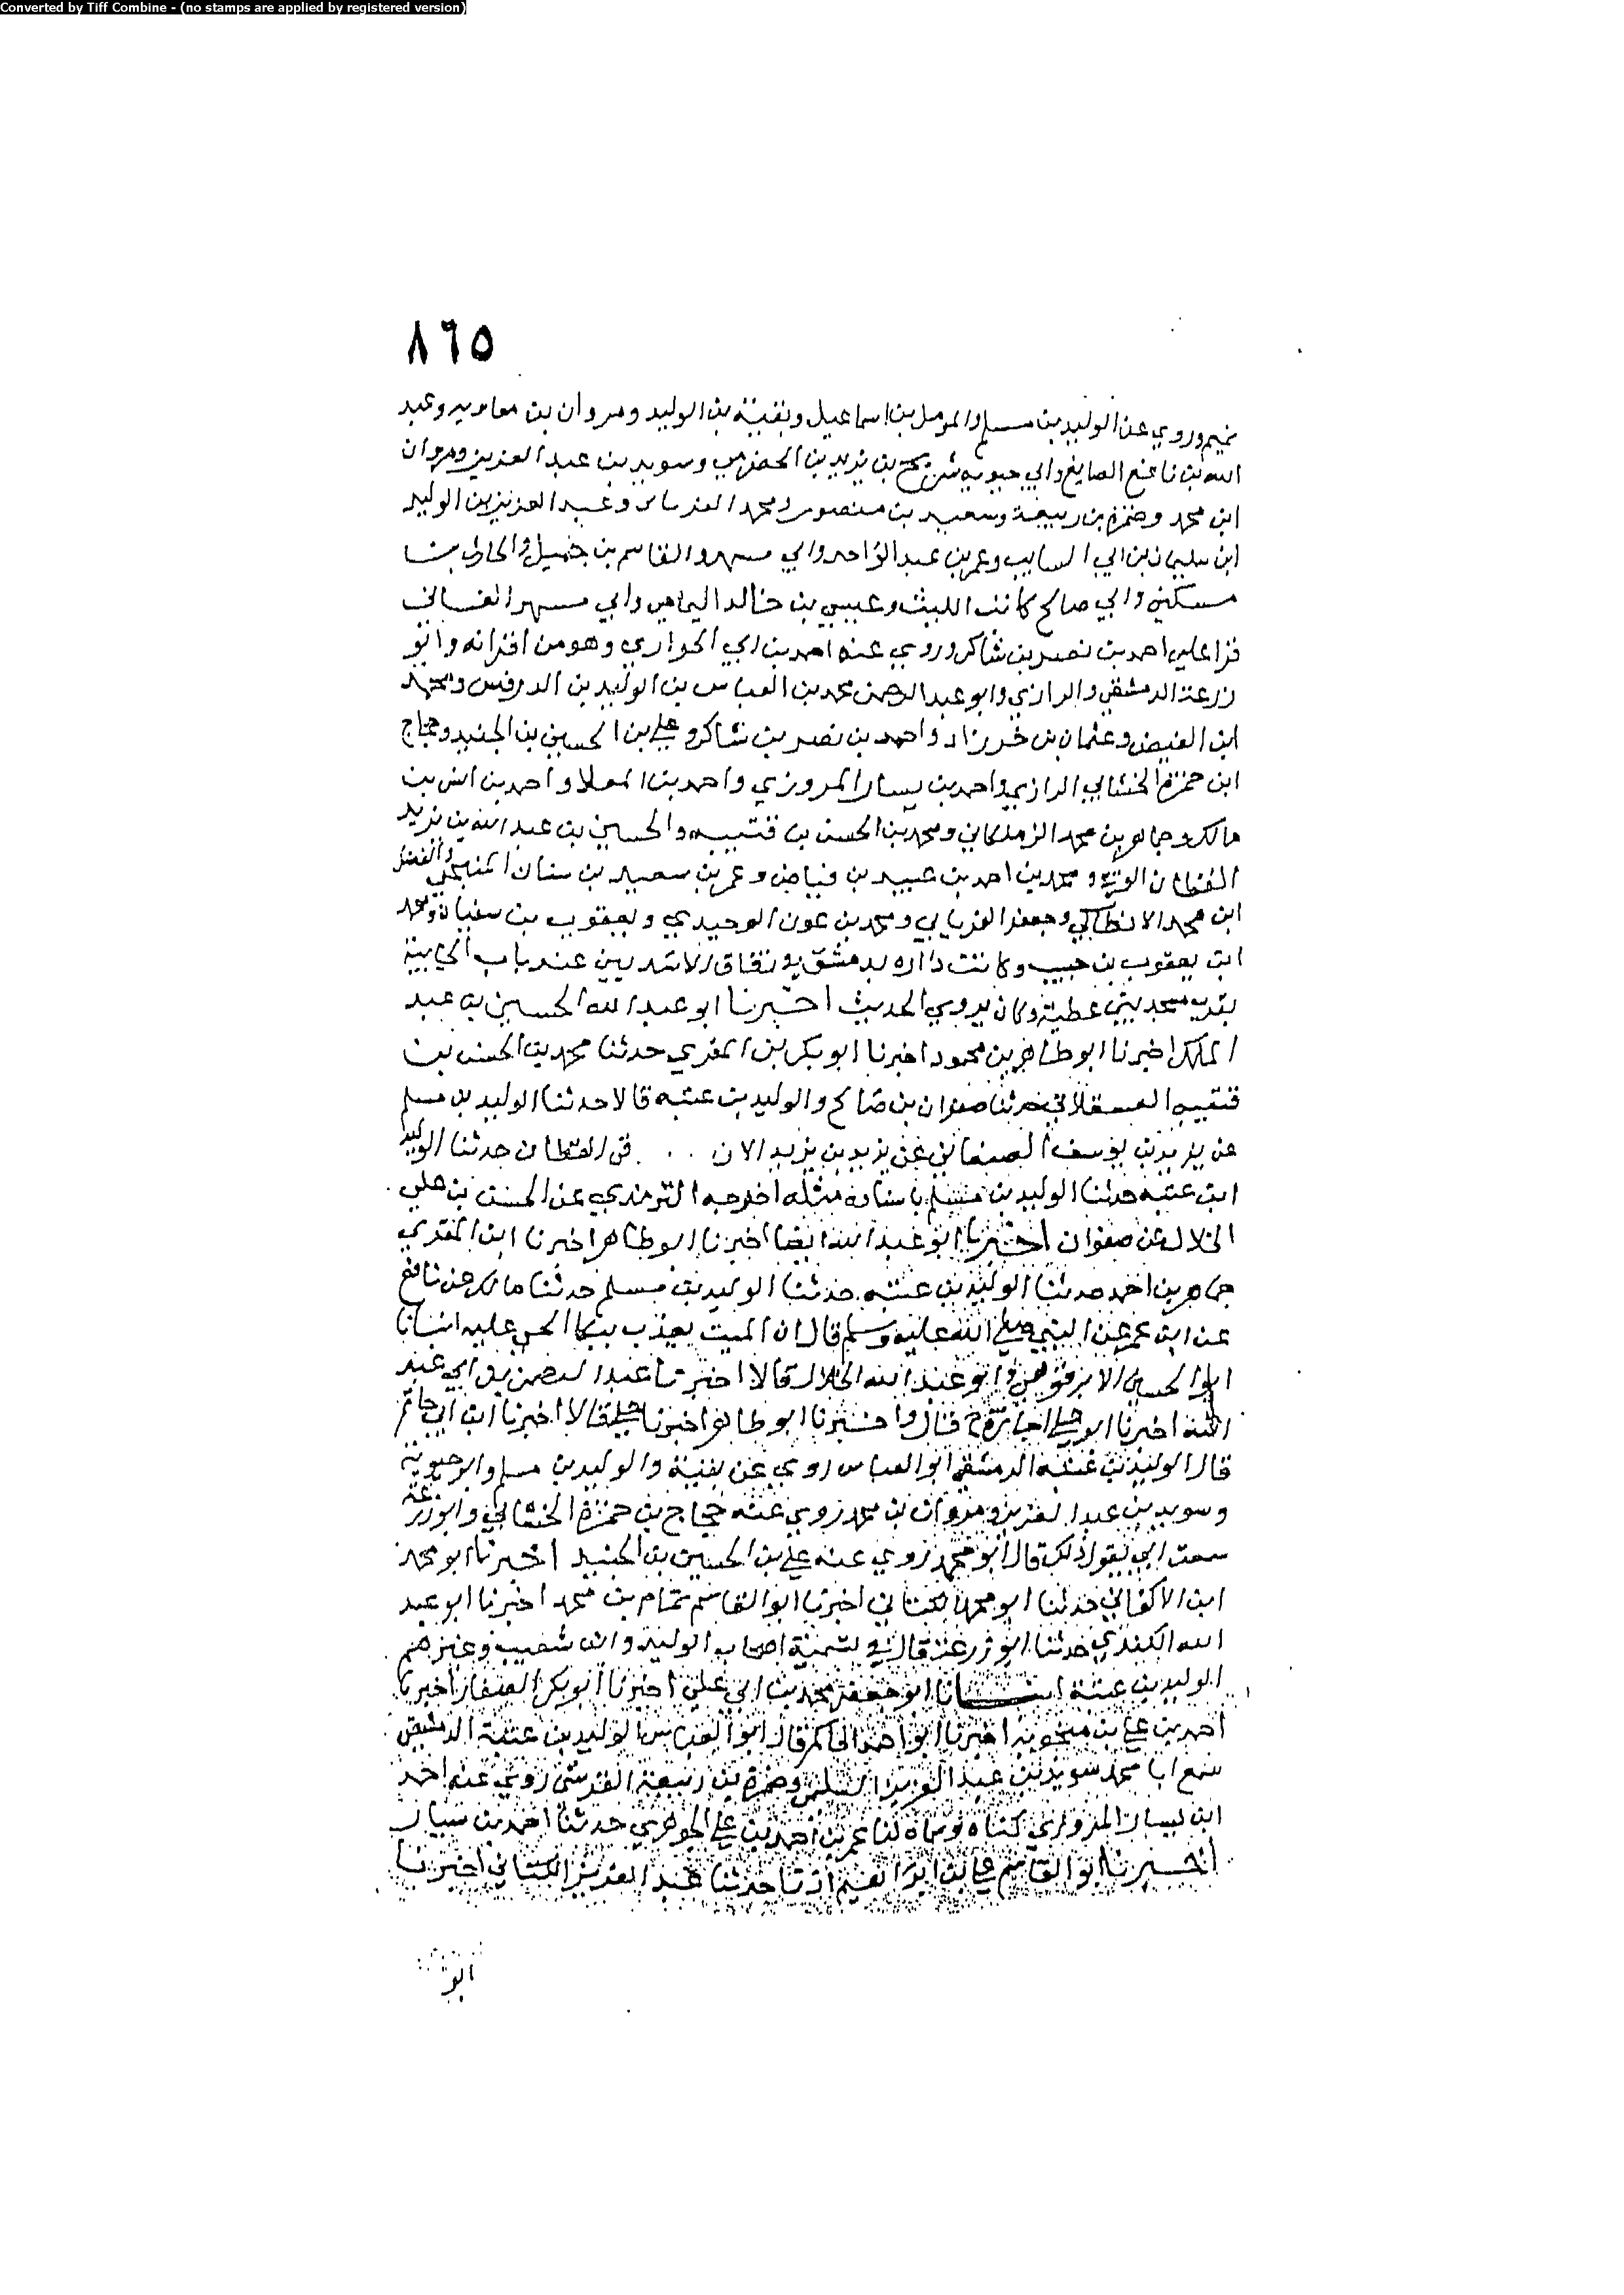 Converted by Tiff Combine - (no stamps are applied by registered version)
٨٦٥
تميم وروي عن الوليد بن مسلم والمومل بن اسماعيل وبقية بن الوليد ومروان بن معاويه وعبد
الله بن نافع الصايغ وابي حيويه شريح بن يزيد بن الحضرمي وسويد بن عبد العزيز ومروان
ابن محمد وضمرة بن ربيعة وسعيد بن منصور ومحمد وعبد العزيز بن الوليد
ابن سليمان بن ابي السايب وعمر بن عبد الواحد وابي مسهر والقاسم بن جميل والحارث بن
مسكين وابي صالح كاتب الليث وعيسي بن خالد اليمامي وابي مسهر الغساني
قرا علي احمد بن نصر بن شاكر وروي عنه احمد بن ابي الحواري وهو من اقرانه وابو
زرعة الدمشقي والرازي وابو عبد الرحمن محمد بن العباس بن الوليد بن الدرفس ومحمد
ابن الفيض وعثمان بن خرزاد واحمد بن نصر بن شاكر وعلي بن الحسين بن الجنيد وحجاج
ابن حمزة الخشابي الرازي واحمد بن يسار المروزي واحمد بن المعلا واحمد بن انس بن
مالك وجماهر بن محمد الزملكاني ومحمد بن الحسن بن قتيبه والحسين بن عبد الله بن يزيد
القطان الرقي ومحمد بن احمد بن عبيد بن فياض وعمر بن سعيد بن سنان المنبجي والفضل
ابن محمد الانطاكي وجعفر الفريابي ومحمد بن عون الوحيدي ويعقوب بن سفيان ومحمد
ابن يعقوب بن حبيب وكانت داره بدمشق في زقاق الاسديين عند باب الجابية
بقرب مسجد بني عطية وكان يروي الحديث اخبرنا ابو عبد الله الحسين بن عبد
الملك اخبرنا ابو طاهر بن محمود اخبرنا ابو بكر بن المقري حدثنا محمد بن الحسن بن
قتيبه العسقلاني حدثنا صفوان بن صالح والوليد بن عتبه قالا حدثنا الوليد بن مسلم
عن يزيد بن يوسف الصنعاني عن يزيد بن يزيد الان . . . القطان حدثنا الوليد
ابن عتبه حدثنا الوليد بن مسلم باسناده مثله اخرجه الترمذي عن الحسن بن علي
الخلال عن صفوان اخبرنا ابو عبد الله ايضا اخبرنا ابو طاهر اخبرنا ابن المقري
جماهر بن احمد حدثنا الوليد بن عتبه حدثنا الوليد بن مسلم حدثنا مالك عن نافع
عن ابن عمر عن النبي صلي الله عليه وسلم قال ان الميت يعذب ببكا الحي عليه انبانا
ابو الحسين الابرقوهي وابو عبد الله الخلال قالا اخبرنا عبد الرحمن بن ابي عبد
الله اخبرنا ابو علي اجازة ح قال واخبرنا ابو طاهر اخبرنا علي قالا اخبرنا ابن ابي حاتم
قال الوليد بن عتبه الدمشقي ابو العباس روي عن بقية والوليد بن مسلم وابو حيوية
وسويد بن عبد العزيز ومروان بن محمد روي عنه حجاج بن حمزة الخشابي وابو زرعة
سمعت ابي يقول ذلك قال ابو محمد روي عنه علي بن الحسين بن الجنيد اخبرنا ابو محمد
ابن الاكفاني حدثنا ابو محمد الكتاني اخبرنا ابو القاسم تمام بن محمد اخبرنا ابو عبد
الله الكندي حدثنا ابو زرعة قال في تسمية اصحاب الوليد وابن شعيب وغيرهم
الوليد بن عتبة انبانا ابو جعفر محمد بن ابي علي اخبرنا ابو بكر الصفار اخبرنا
احمد بن علي بن منجويه اخبرنا ابو احمد الحاكم قال ابو العباس الوليد بن عتبة الدمشقي
سمع ابا محمد سويد بن عبد العزيز السلمي وضمرة بن ربيعة القرشي روي عنه احمد
ابن سيار المروزي كناه وسماه لنا عمر بن احمد بن علي الجوهري حدثنا احمد بن سيار
اخبرنا ابو القاسم اذنا حدثنا عبد العزيز الكتاني اخبرنا
ابو